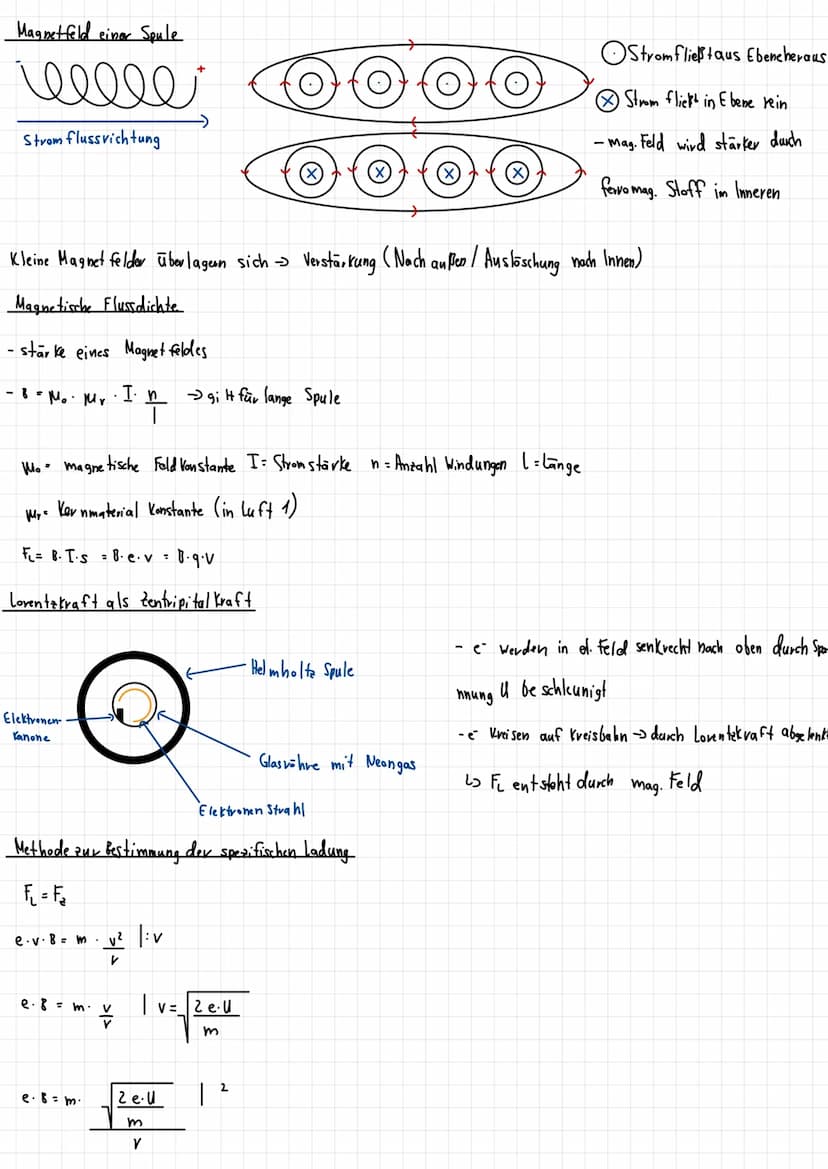 Magnetfeld einer Spule
- +
Stromflussrichtung
⊙ Strom fließt aus Ebene heraus
⊗ Strom fließt in Ebene rein
- mag. Feld wird stärker durch
ferromag. Stoff im Inneren
x x x x
Kleine Magnetfelder überlagern sich → Verstärkung (Nach außen / Auslöschung nach Innen)
Magnetische Flussdichte
- stärke eines Magnetfeldes
- B = μ₀ · μr · I · n/l → gilt für lange Spule
μ₀ = magnetische Feldkonstante I = Stromstärke n = Anzahl Windungen l = Länge
μr = Kernmaterial Konstante (in Luft 1)
FL = B · I · s = B · e · v = B · q · v
Lorentzkraft als Zentripitalkraft
Helmholtz Spule
Elektronen-
kanone
Glasröhre mit Neongas
Elektronen Strahl
- e⁻ werden in el. Feld senkrecht nach oben durch Spa-
nnung U beschleunigt
- e⁻ kreisen auf Kreisbahn → durch Lorentzkraft abgelenkt
↳ FL entsteht durch mag. Feld
Methode zur Bestimmung der spezifischen Ladung
FL = Fz
e · v · B = m · v²/r |: v
e · B = m · v/r | v = √(2 e · U/m)
e · B = m · √(2 e · U/m)/r | ²